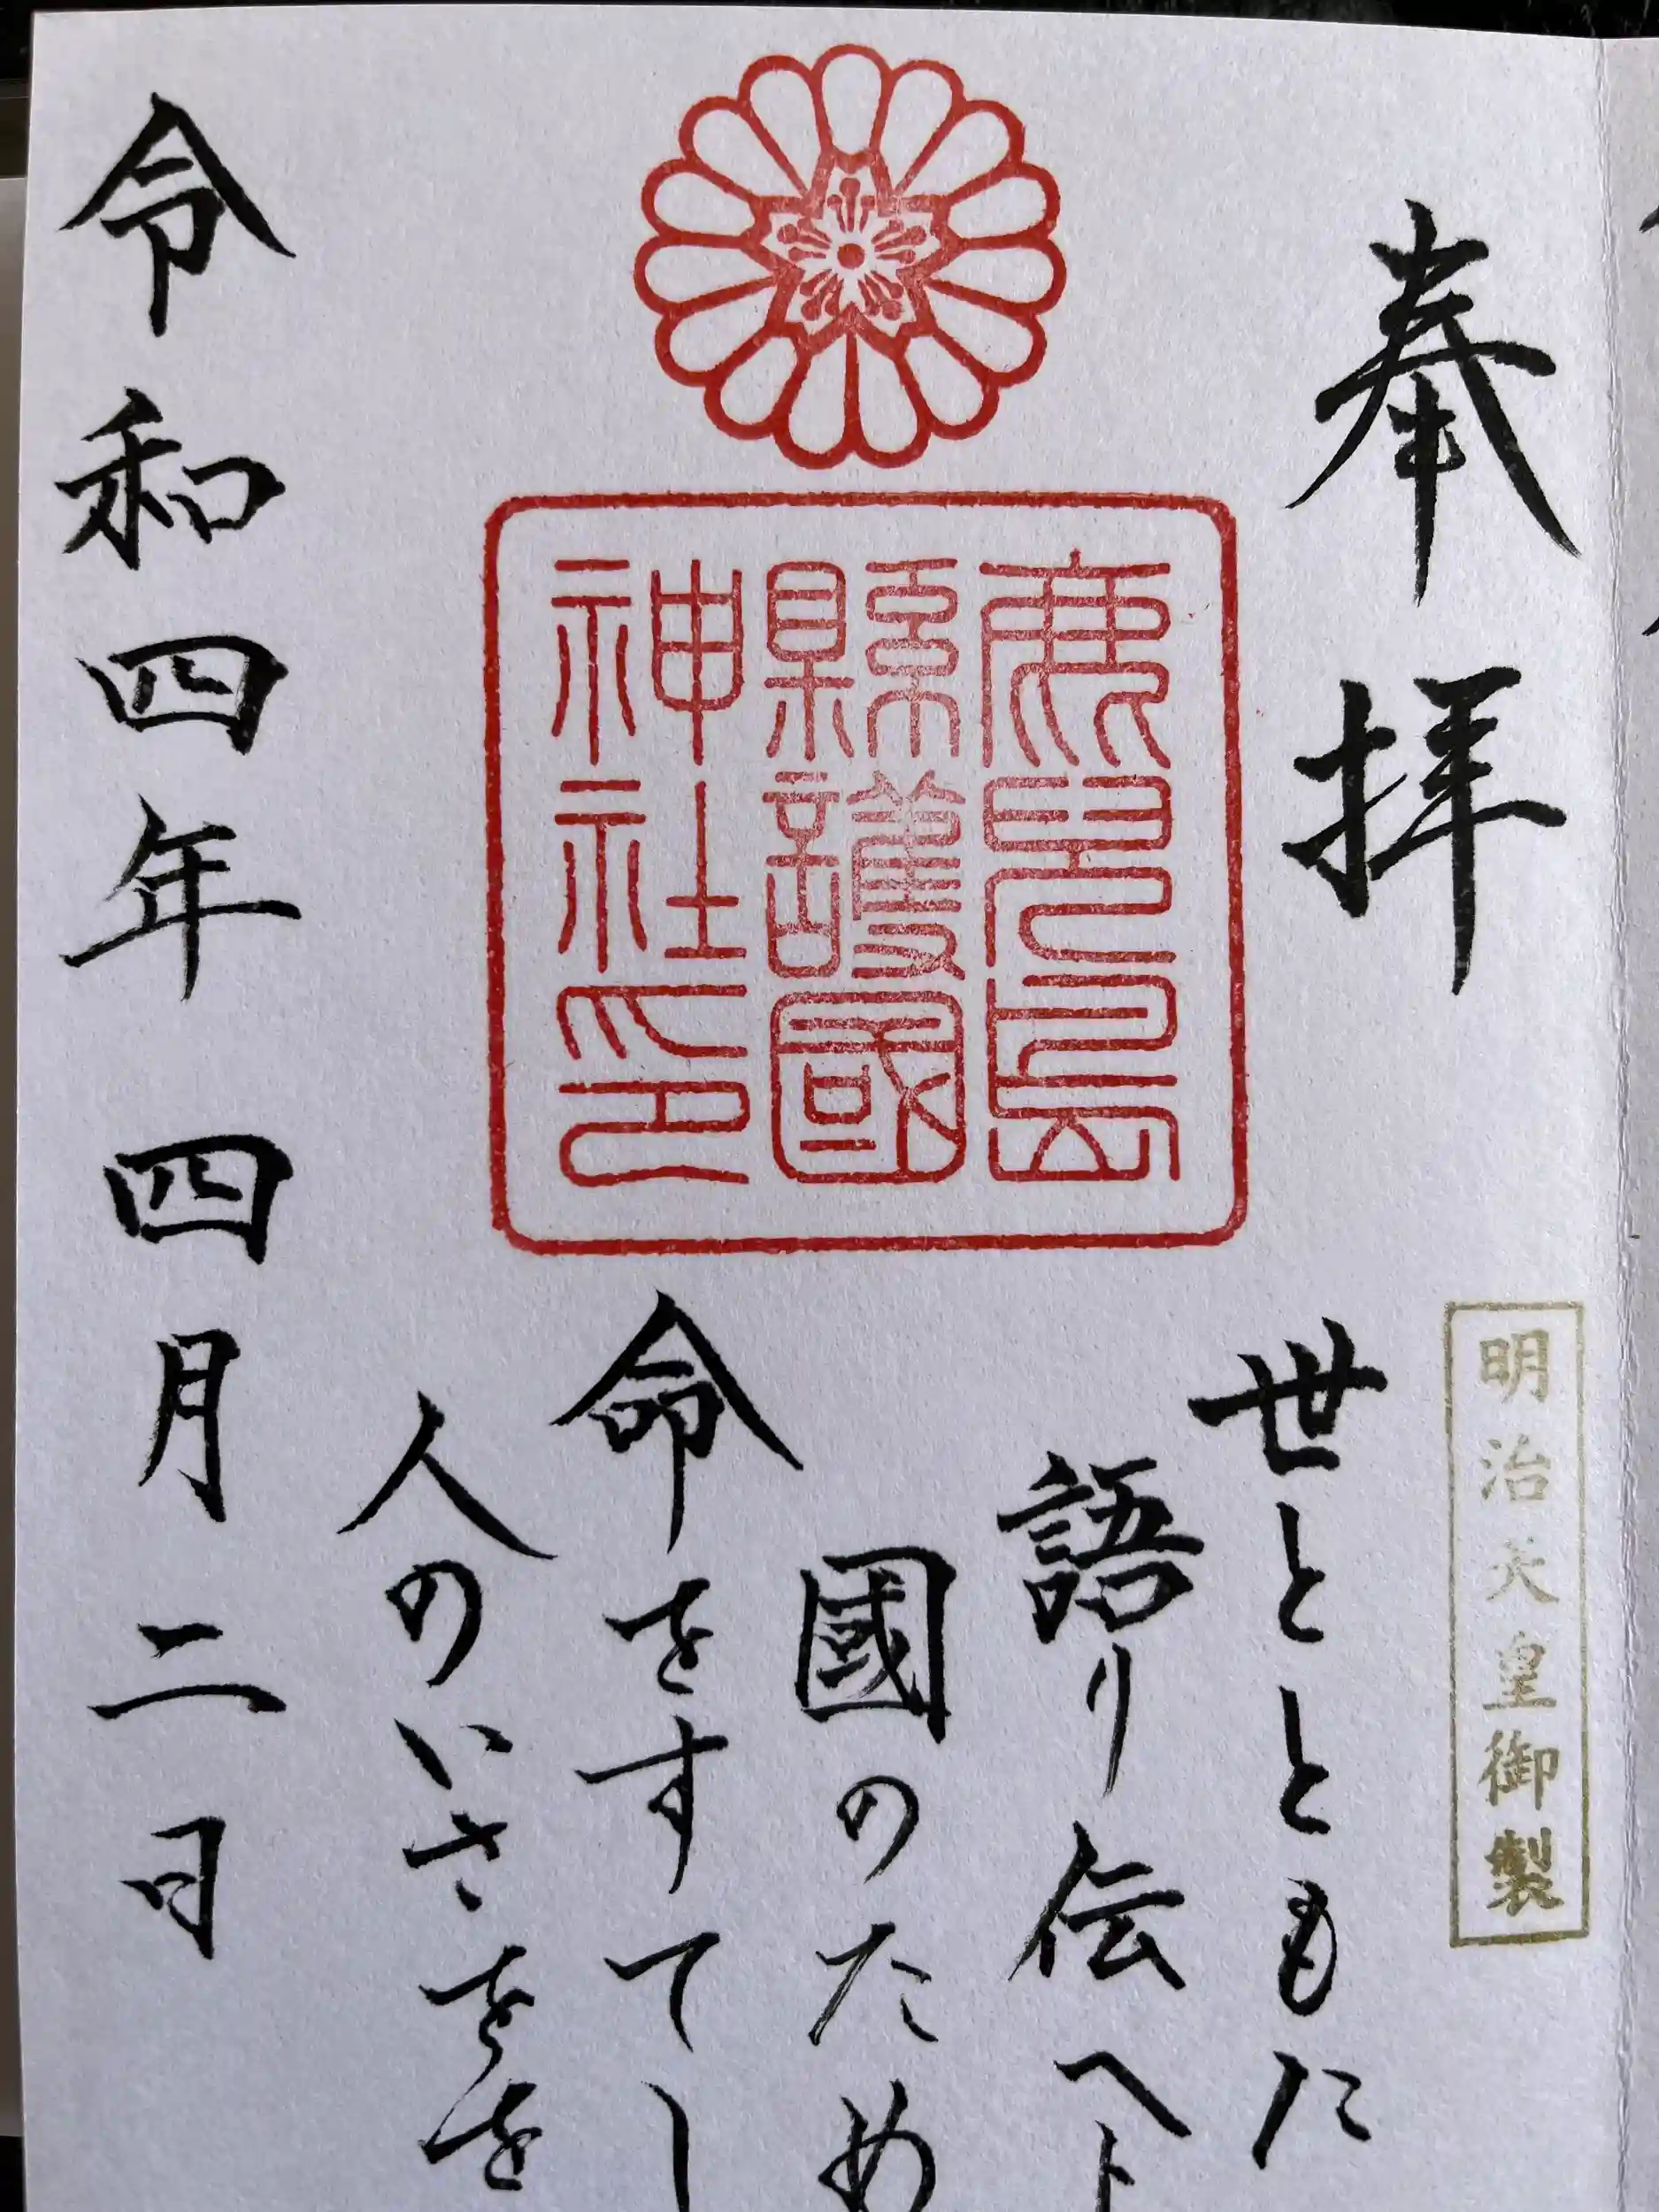 奉拝
明治天皇御製
鹿兒島
縣護國
神社印
世とともに
語り伝へよ
國のため
命をすてし
人のいさをを
令和四年 四月二日